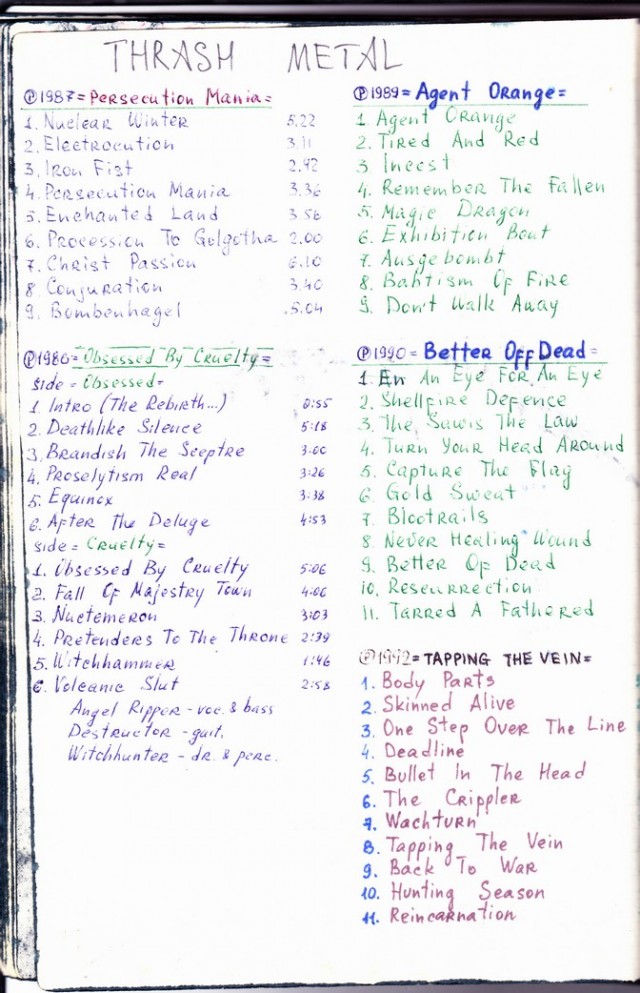 THRASH METAL
℗1987=Persecution Mania=
1. Nuclear Winter 5.22
2. Electrocution 3.11
3. Iron Fist 2.42
4. Persecution Mania 3.36
5. Enchanted Land 3.56
6. Procession To Golgotha 2.00
7. Christ Passion 6.10
8. Conjuration 3.40
9. Bombenhagel 5.04
℗1986=Obsessed By Cruelty=
side=Obsessed=
1. Intro (The Rebirth...) 0:55
2. Deathlike Silence 5:18
3. Brandish The Sceptre 3:00
4. Proselytism Real 3:26
5. Equinox 3:38
6. After The Deluge 4:53
side=Cruelty=
1. Obsessed By Cruelty 5:06
2. Fall Of Majestry Town 4:00
3. Nuctemeron 3:03
4. Pretenders To The Throne 2:39
5. Witchhammer 1:46
6. Volcanic Slut 2:58
Angel Ripper - voc. & bass
Destructor - guit.
Witchhunter - dr. & perc.
℗1989=Agent Orange=
1. Agent Orange
2. Tired And Red
3. Incest
4. Remember The Fallen
5. Magic Dragon
6. Exhibition Bout
7. Ausgebombt
8. Babtism Of Fire
9. Don't Walk Away
℗1990=Better Off Dead=
1. An Eye For An Eye
2. Shellfire Defence
3. The Saw is The Law
4. Turn Your Head Around
5. Capture The Flag
6. Gold Sweat
7. Blootrails
8. Never Healing Wound
9. Better Of Dead
10. Resurrection
11. Tarred A Fathered
℗1992=TAPPING THE VEIN=
1. Body Parts
2. Skinned Alive
3. One Step Over The Line
4. Deadline
5. Bullet In The Head
6. The Crippler
7. Wachturn
8. Tapping The Vein
9. Back To War
10. Hunting Season
11. Reincarnation